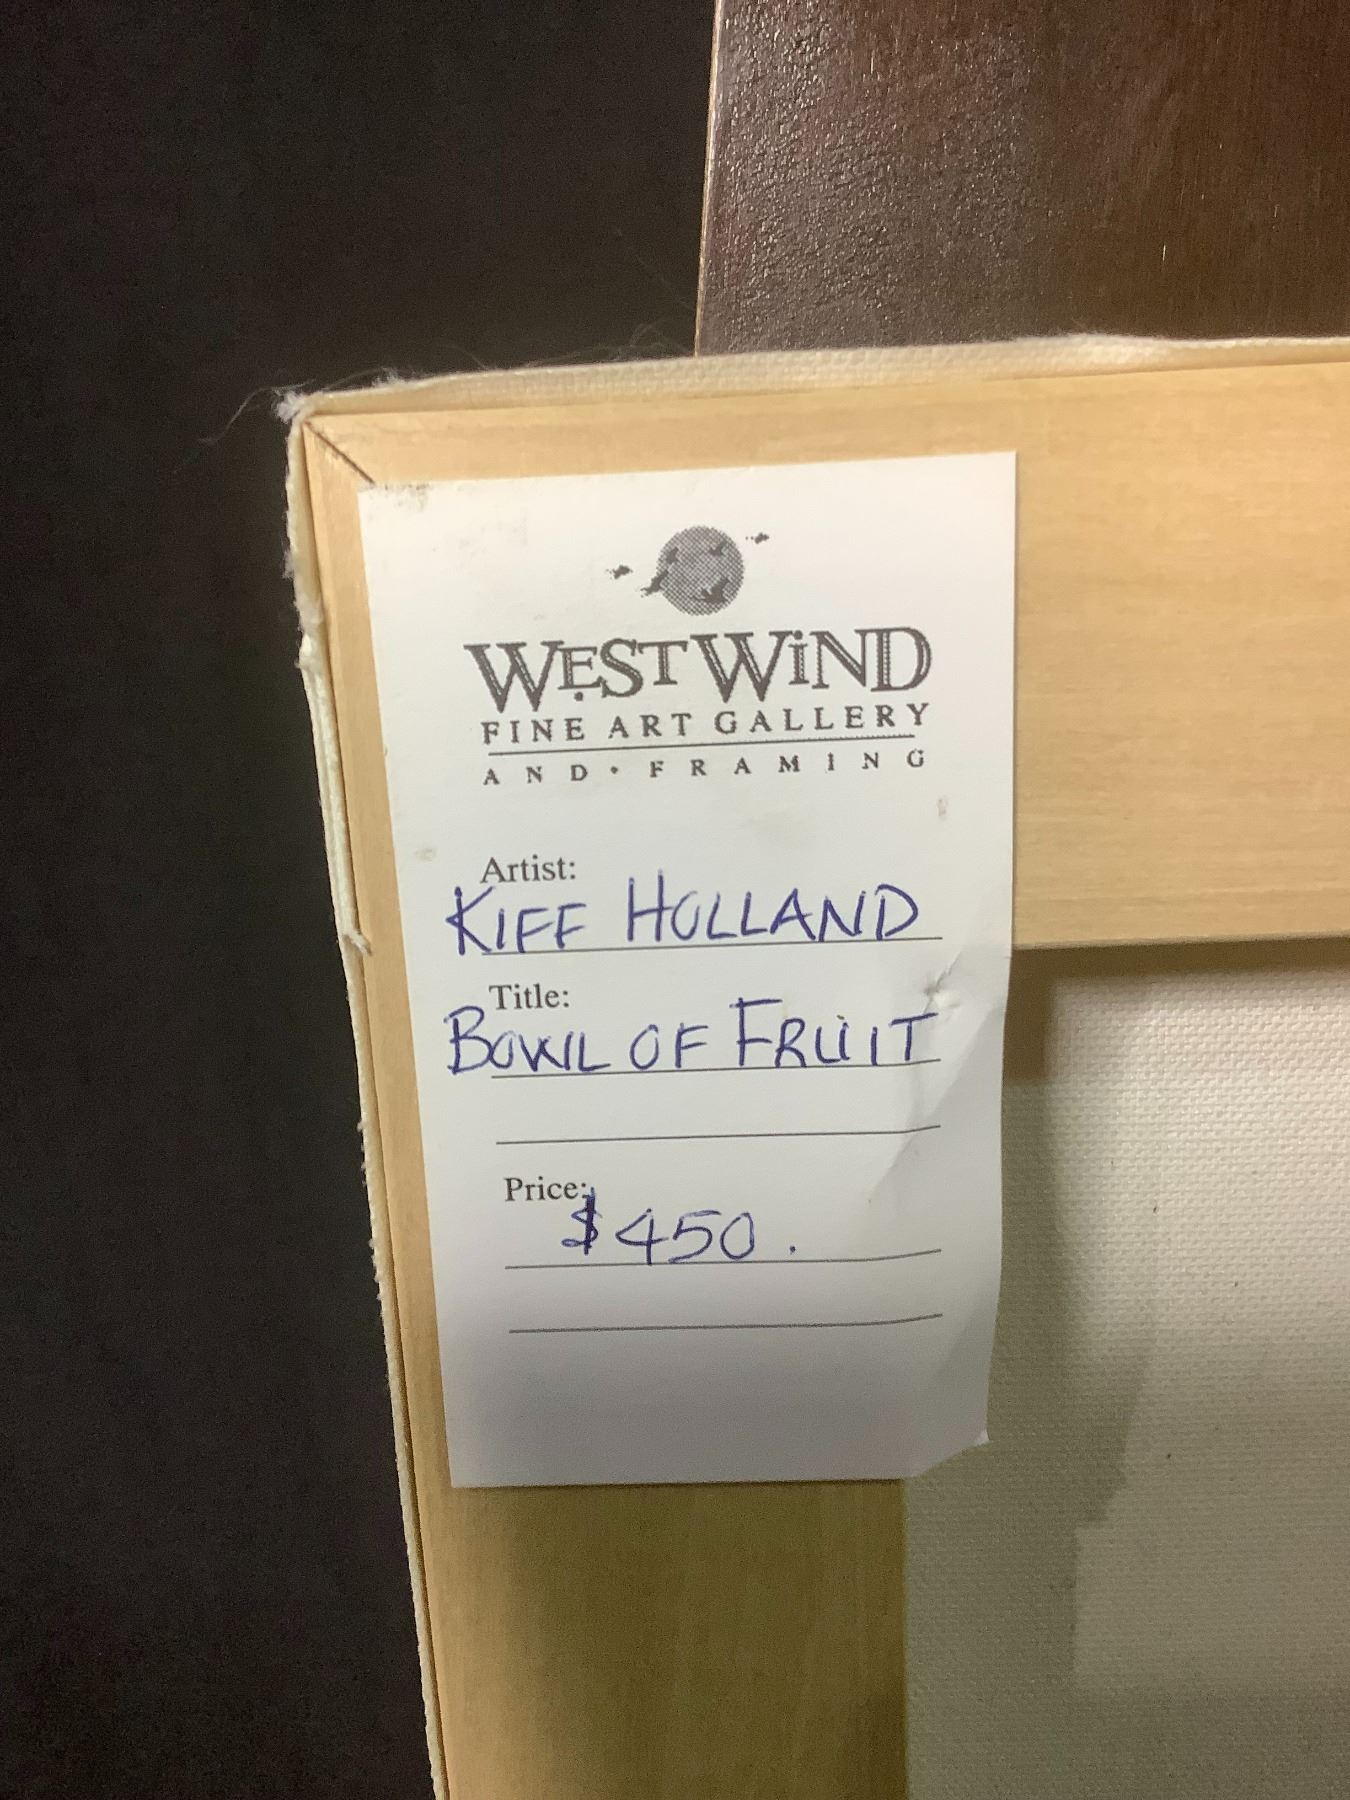 WEST WiND
FINE ART GALLERY
AND • FRAMING
Artist:
KIFF HOLLAND
Title:
BOWL OF FRUIT
Price:
$450.